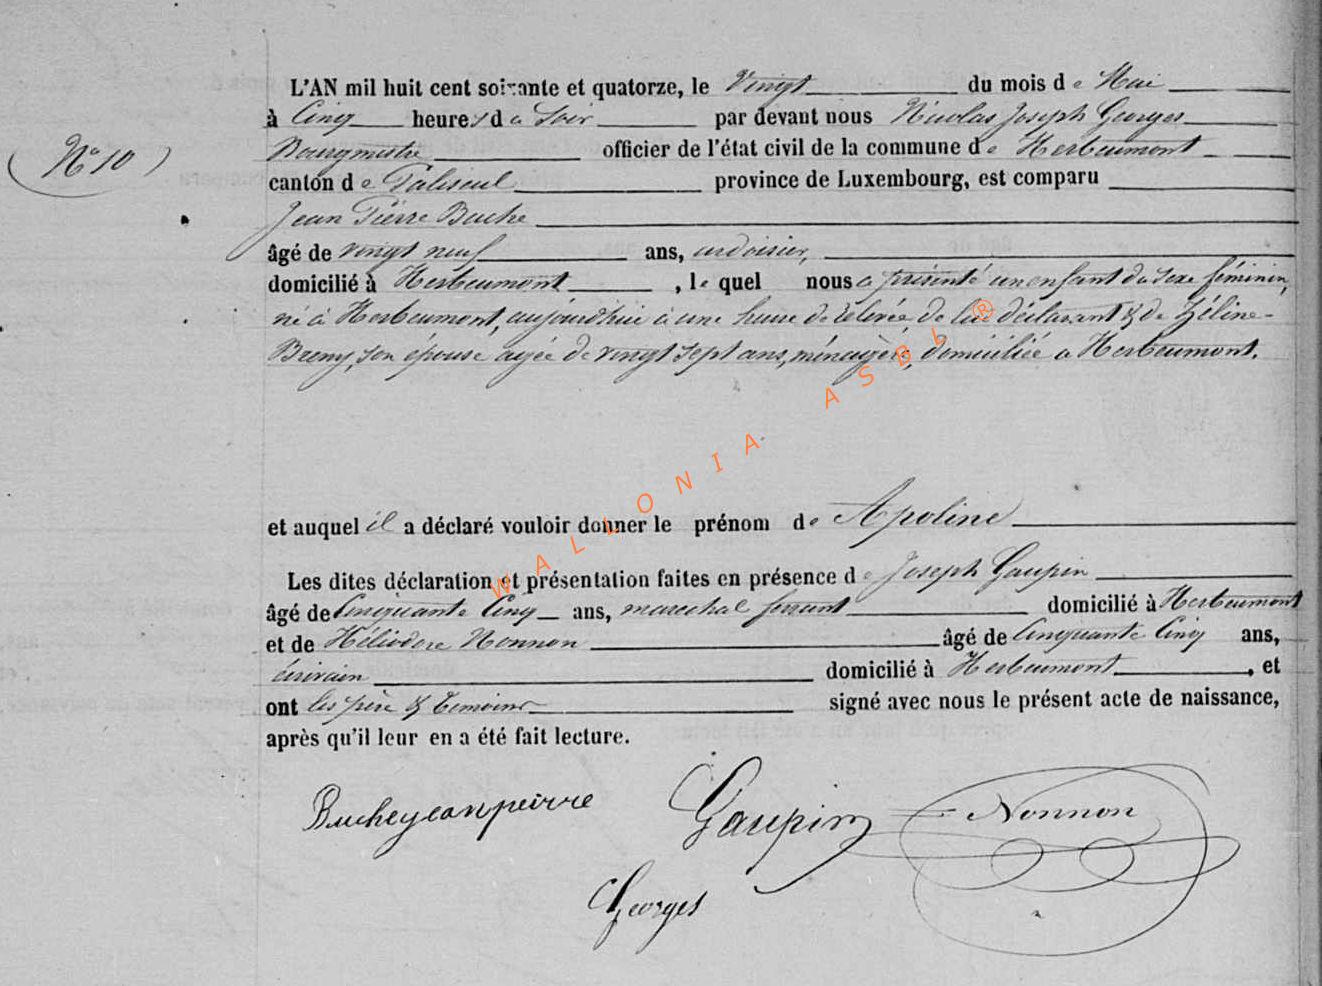 L'AN mil huit cent soixante et quatorze, le Vingt du mois de Mai
à Cinq heures du Soir par devant nous Nicolas Joseph Georges
(N° 10) Bourgmestre officier de l'état civil de la commune de Herbeumont
canton de Paliseul province de Luxembourg, est comparu
Jean Pierre Buche
âgé de vingt neuf ans, ardoisier,
domicilié à Herbeumont, le quel nous a présenté un enfant du sexe féminin,
né à Herbeumont, aujourd'hui à une heure de relevée de lui déclarant & de Héline
Bremy, son épouse agée de vingt sept ans, ménagère, domiciliée à Herbeumont.
et auquel il a déclaré vouloir donner le prénom de Apoline
Les dites déclaration et présentation faites en présence de Joseph Gaupin
âgé de Cinquante Cinq ans, marechal ferrant domicilié à Herbeumont
et de Héliodore Nonnon âgé de Cinquante Cinq ans,
écrivain domicilié à Herbeumont, et
ont les père & temoins signé avec nous le présent acte de naissance,
après qu'il leur en a été fait lecture.
Bucheyeanpeirre Gaupin Nonnon
Georges
WALLONIA ASBL ®